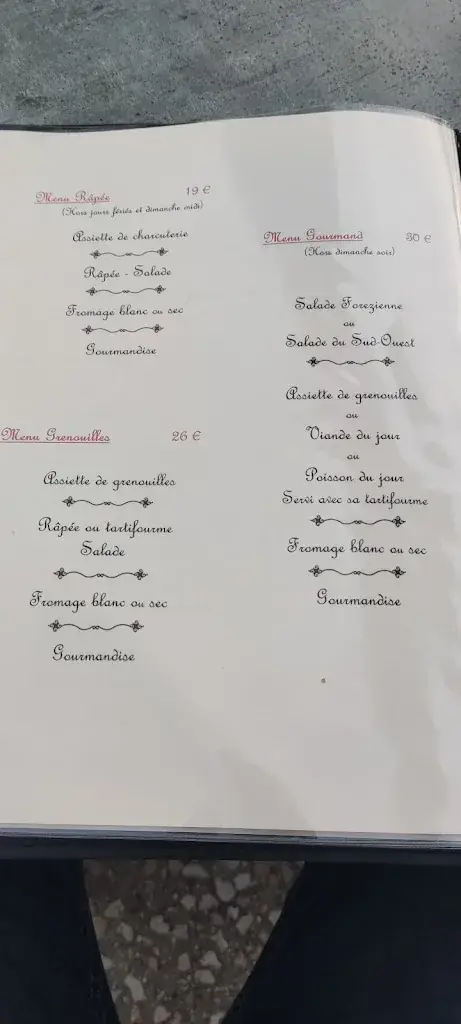 Menu Râpée 19 €
(Hors jours fériés et dimanche midi)
Assiette de charcuterie
Râpée - Salade
Fromage blanc ou sec
Gourmandise
Menu Grenouilles 26 €
Assiette de grenouilles
Râpée ou tartifourme
Salade
Fromage blanc ou sec
Gourmandise
Menu Gourmand 30 €
(Hors dimanche soir)
Salade Forezienne
ou
Salade du Sud-Ouest
Assiette de grenouilles
ou
Viande du jour
ou
Poisson du jour
Servi avec sa tartifourme
Fromage blanc ou sec
Gourmandise